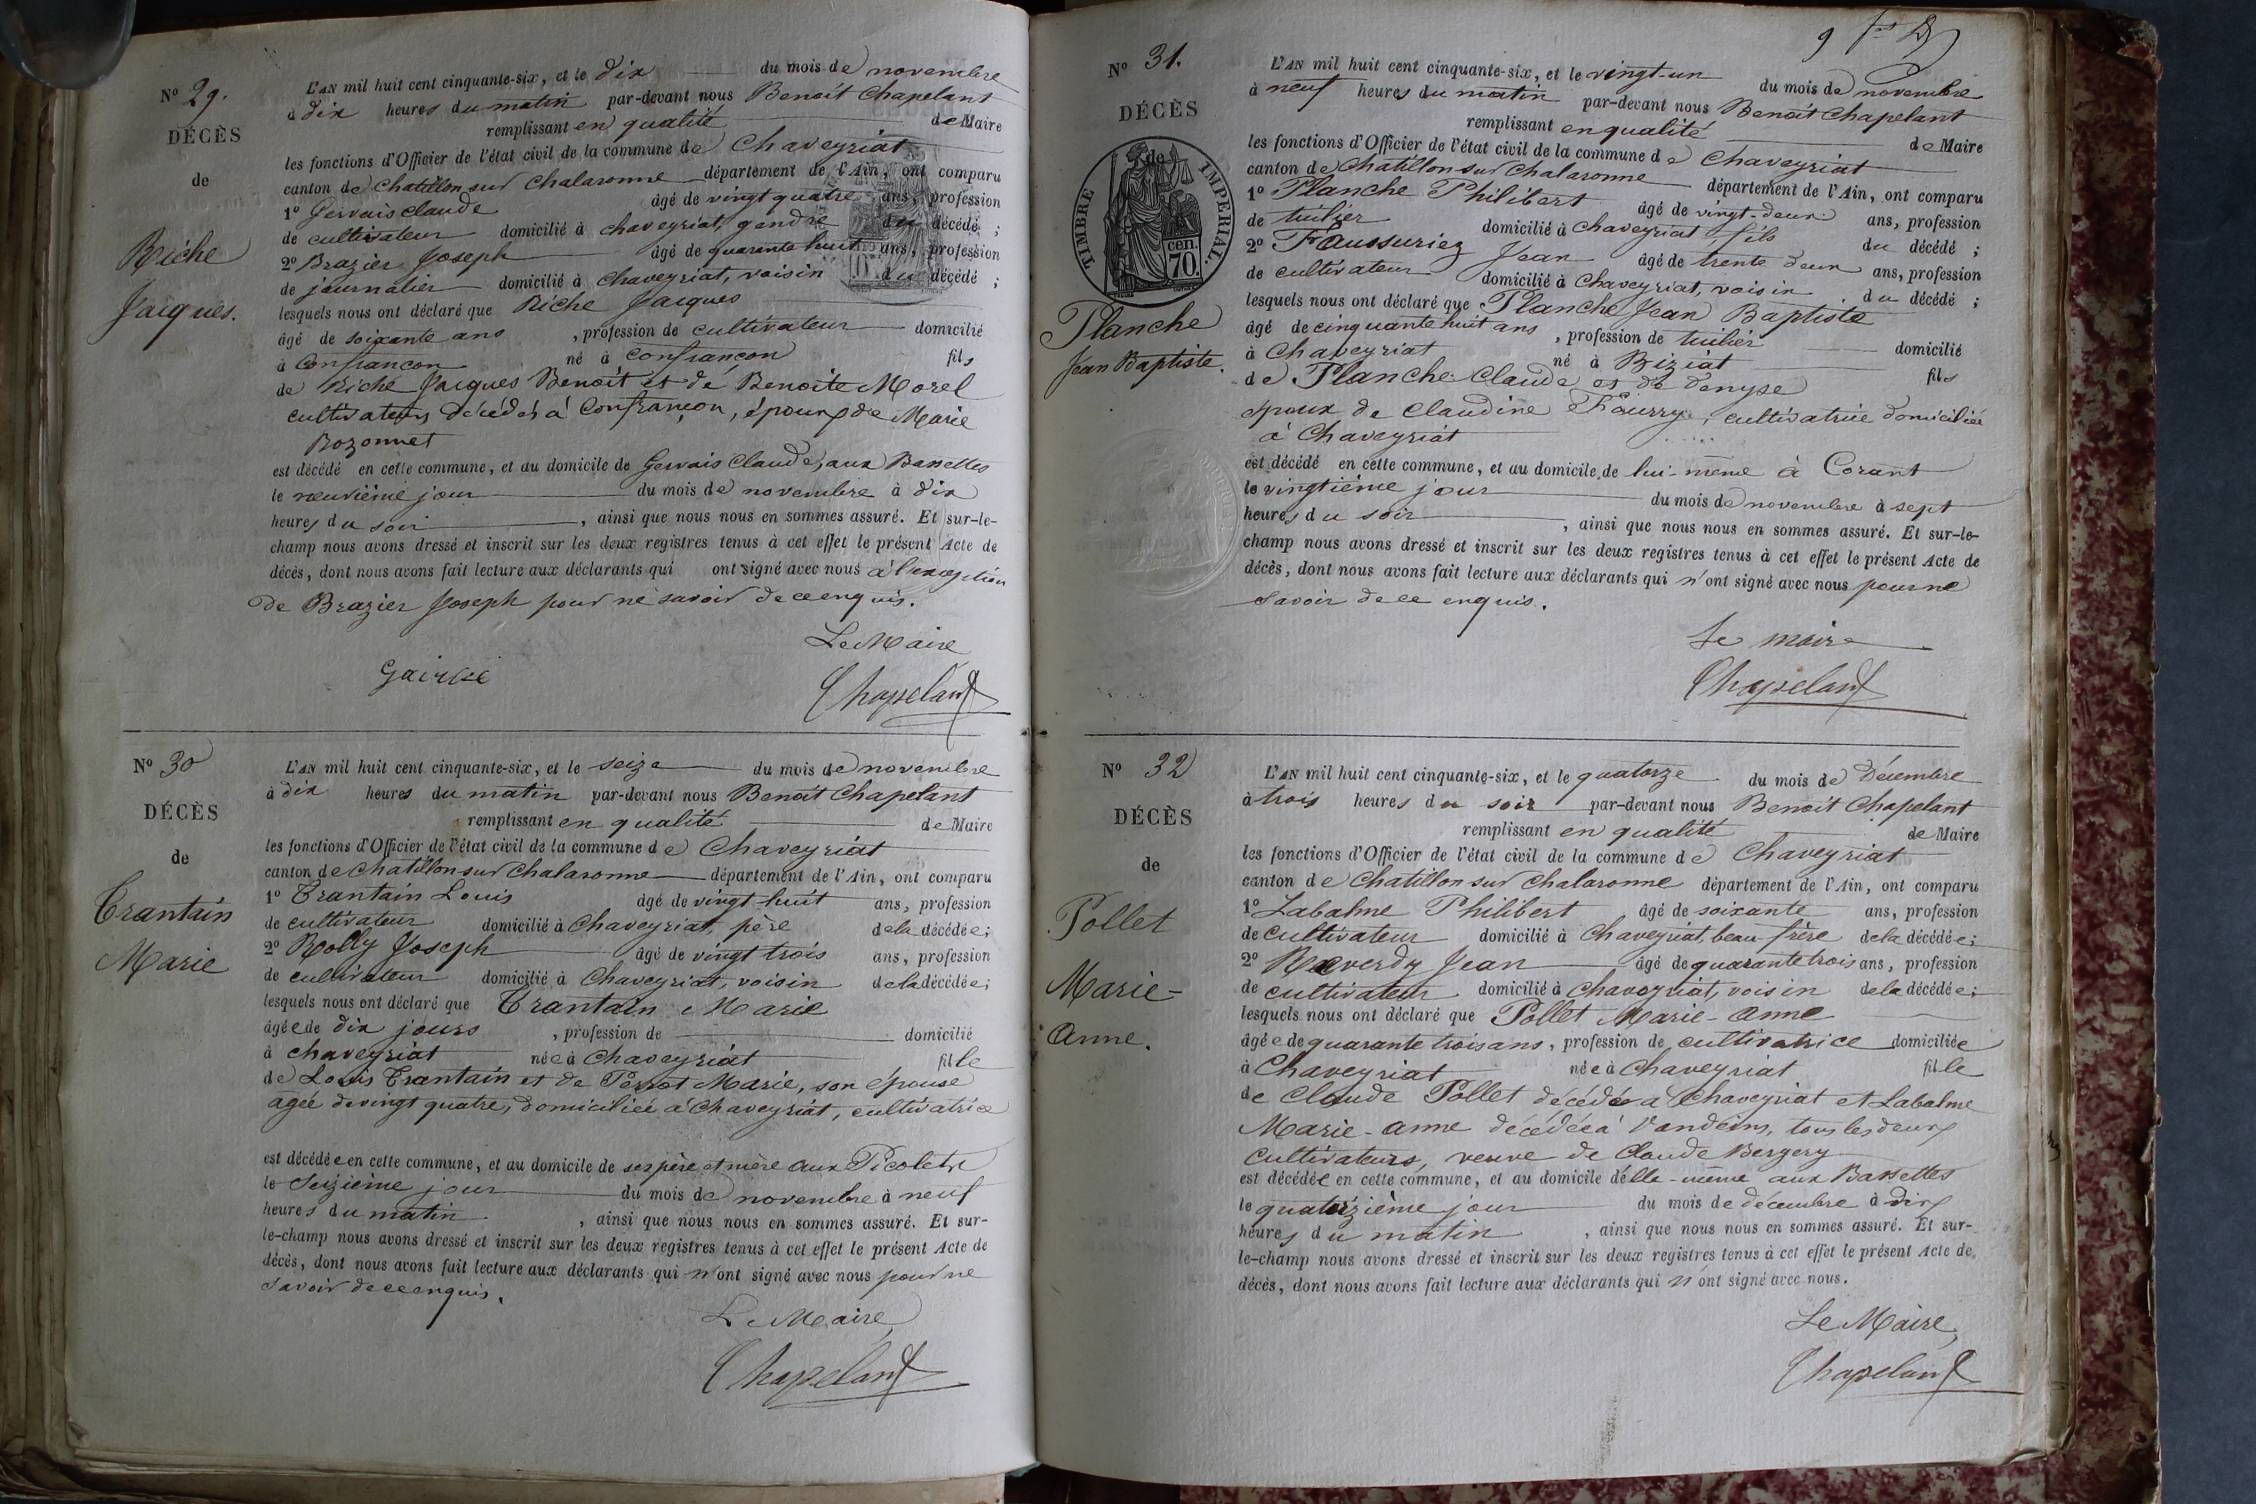 N° 29.
DÉCÈS
de
Riche
Jacques.
L'AN mil huit cent cinquante-six, et le dix du mois de novembre
à dix heures du matin par-devant nous Benoit Chapelant
remplissant en qualité de Maire
les fonctions d'Officier de l'état civil de la commune de Chaveyriat
canton de Chatillon sur Chalaronne département de l'Ain, ont comparu
1° Gervais claude âgé de vingt quatre ans, profession
de cultivateur domicilié à chaveyriat, gendre du décédé ;
2° Brazier Joseph âgé de quarante huit ans, profession
de journalier domicilié à Chaveyriat, voisin du décédé ;
lesquels nous ont déclaré que Riche Jacques
âgé de soixante ans , profession de cultivateur domicilié
à Confrançon né à Confrançon fils
de Riche Jacques Benoit et de Benoite Morel
cultivateurs décédés à Confrançon, époux de Marie
Bozonnet
est décédé en cette commune, et au domicile de Gervais Claude, aux Bassettes
le neuvième jour du mois de novembre à dix
heures du soir , ainsi que nous nous en sommes assuré. Et sur-le-
champ nous avons dressé et inscrit sur les deux registres tenus à cet effet le présent Acte de
décès, dont nous avons fait lecture aux déclarants qui ont signé avec nous à l'exception
de Brazier Joseph pour ne savoir de ce enquis.
Le Maire
Chapelant
N° 30
DÉCÈS
de
Trantain
Marie
L'AN mil huit cent cinquante-six, et le seize du mois de novembre
à dix heures du matin par-devant nous Benoit Chapelant
remplissant en qualité de Maire
les fonctions d'Officier de l'état civil de la commune de Chaveyriat
canton de Chatillon sur Chalaronne département de l'Ain, ont comparu
1° Trantain Louis âgé de vingt-huit ans, profession
de cultivateur domicilié à Chaveyriat, père de la décédée ;
2° Rolly Joseph âgé de vingt trois ans, profession
de cultivateur domicilié à Chaveyriat, voisin de la décédée ;
lesquels nous ont déclaré que Trantain Marie
âgée de dix jours , profession de domicilié
à chaveyriat née à Chaveyriat fille
de Louis Trantain et de Perrot Marie, son épouse
agée de vingt quatre, domiciliée à Chaveyriat, cultivatrice
est décédée en cette commune, et au domicile de ses père et mère aux Picolets
le Seizième jour du mois de novembre à neuf
heures du matin , ainsi que nous nous en sommes assuré. Et sur-
le-champ nous avons dressé et inscrit sur les deux registres tenus à cet effet le présent Acte de
décès, dont nous avons fait lecture aux déclarants qui n'ont signé avec nous pour ne
savoir de ce enquis.
Le Maire,
Chapelant
N° 31.
DÉCÈS
de
TIMBRE IMPERIAL.
70. cen.
Planche
Jean Baptiste.
L'AN mil huit cent cinquante-six, et le vingt-un du mois de novembre
à neuf heures du matin par-devant nous Benoit Chapelant
remplissant en qualité de Maire
les fonctions d'Officier de l'état civil de la commune de Chaveyriat
canton de Chatillon sur Chalaronne département de l'Ain, ont comparu
1° Planche Philibert âgé de vingt-deux ans, profession
de tuilier domicilié à Chaveyriat, fils du décédé ;
2° Faussuriez Jean âgé de trente deux ans, profession
de cultivateur domicilié à Chaveyriat, voisin du décédé ;
lesquels nous ont déclaré que Planche Jean Baptiste
âgé de cinquante huit ans , profession de tuilier domicilié
à Chaveyriat né à Biziat fils
de Planche Claude et de Denyse
époux de claudine Fourry, cultivatrice domiciliée
à Chaveyriat
est décédé en cette commune, et au domicile de lui-même à Corant
le vingtième jour du mois de novembre à sept
heures du soir , ainsi que nous nous en sommes assuré. Et sur-le-
champ nous avons dressé et inscrit sur les deux registres tenus à cet effet le présent Acte de
décès, dont nous avons fait lecture aux déclarants qui n'ont signé avec nous pour ne
savoir de ce enquis.
Le maire
Chapelant
N° 32
DÉCÈS
de
Pollet
Marie-
Anne.
L'AN mil huit cent cinquante-six, et le quatorze du mois de Décembre
à trois heures du soir par-devant nous Benoit Chapelant
remplissant en qualité de Maire
les fonctions d'Officier de l'état civil de la commune de Chaveyriat
canton de Chatillon sur Chalaronne département de l'Ain, ont comparu
1° Labalme Philibert âgé de soixante ans, profession
de cultivateur domicilié à Chaveyriat, beau-frère de la décédée ;
2° Reverdy Jean âgé de quarante trois ans, profession
de cultivateur domicilié à Chaveyriat, voisin de la décédée ;
lesquels nous ont déclaré que Pollet Marie-Anne
âgée de quarante trois ans, profession de cultivatrice domiciliée
à Chaveyriat née à Chaveyriat fille
de Claude Pollet décédé à Chaveyriat et Labalme
Marie-Anne décédée à Vandeins, tous les deux
cultivateurs, veuve de Claude Bergery
est décédée en cette commune, et au domicile d'elle-même aux Bassettes
le quatorzième jour du mois de décembre à dix
heures du matin , ainsi que nous nous en sommes assuré. Et sur-
le-champ nous avons dressé et inscrit sur les deux registres tenus à cet effet le présent Acte de
décès, dont nous avons fait lecture aux déclarants qui n'ont signé avec nous.
Le Maire,
Chapelant